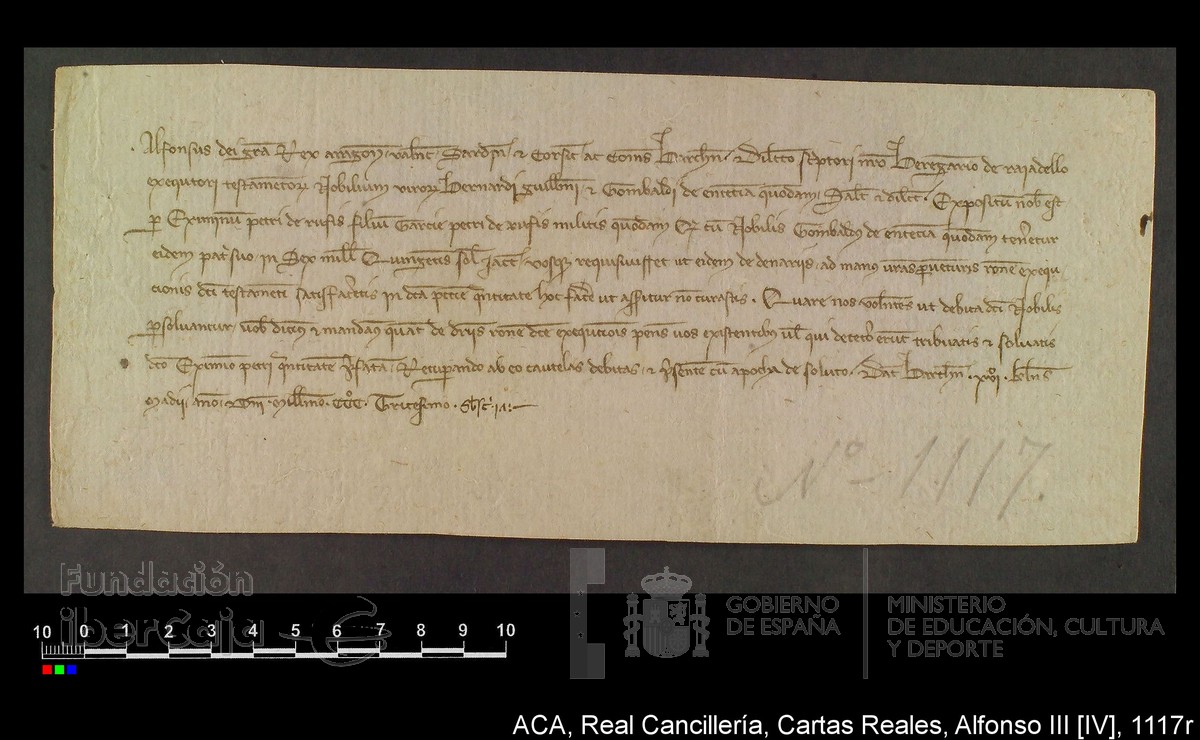 Alfonsus dei gra Rex aragon, valent, Sardin, & Corsic ac Comes Barchn, Dilcto scriptori nro Berengario de rajadello
exequtori testamentor Nobilium viror Bernardi guillmi, & Gombaldi de entencia quondam, Salt & dilect. Expositu nob est
p Eximinu petri de rufis filiu Garcie petri de rufis militis quondam Qr cu Nobilis Gombaldus de entencia quondam teneretur
eidem patri suo, in Sex mill Quingentis sol Jacc, vosq requisivisset ut eidem de denariis, ad manus vras pventuris rone exequ
cionis dci testamenti satisfaceretis in dca peccie quantitate hoc facere ut asseritur no curastis. Quare nos volentes ut debita dci Nobilis
psolvantur, vob dicimus & mandamus quat de driis rone dce exequciois penes vos existentibus vl qui de cetero erunt tribuatis & solvatis
dco Eximio petri quantitate pfatam, Recuperando ab eo cautelas debitas, & psente cu apocha de soluto. Dat Barchn. xvi. klns
Madii, anno, Dni Millmo. CCC. Tricesimo.
Nº 1117.
Fundación
iberCaja
10 0 1 2 3 4 5 6 7 8 9 10
GOBIERNO
DE ESPAÑA
MINISTERIO
DE EDUCACIÓN, CULTURA
Y DEPORTE
ACA, Real Cancillería, Cartas Reales, Alfonso III [IV], 1117r